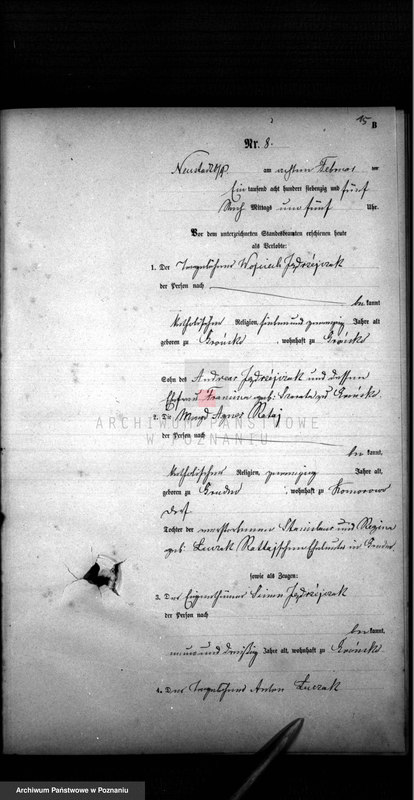 15
B
Nr. 8.
Neustadt b/P am achten Februar
Ein tausend acht hundert siebenzig und fünf
Nach Mittags um fünf Uhr.
Vor dem unterzeichneten Standesbeamten erschienen heute
als Verlobte:
1. Der Tagelöhner Wojciech Jędrzejczak
der Person nach
be kannt
katholischer Religion, sieben und zwanzig Jahre alt
geboren zu , wohnhaft zu
Sohn des Andreas Jędrzejczak und dessen
Ehefrau geb. zu
2. Die Magd Agnes Rataj
ARCHIWUM PAŃSTWOWE
W POZNANIU
der Person nach
be kannt,
katholischer Religion, zwanzig Jahre alt,
geboren zu , wohnhaft zu Komorowo
Dorf
Tochter der verstorbenen Stanislaus und Regina
geb. Luczak Eheleute in
sowie als Zeugen:
3. Der Eigenthümer Simon Jędrzejczak
der Person nach
be kannt,
neun und dreißig Jahre alt, wohnhaft zu
4. Der Tagelöhner Anton Luczak
Archiwum Państwowe w Poznaniu